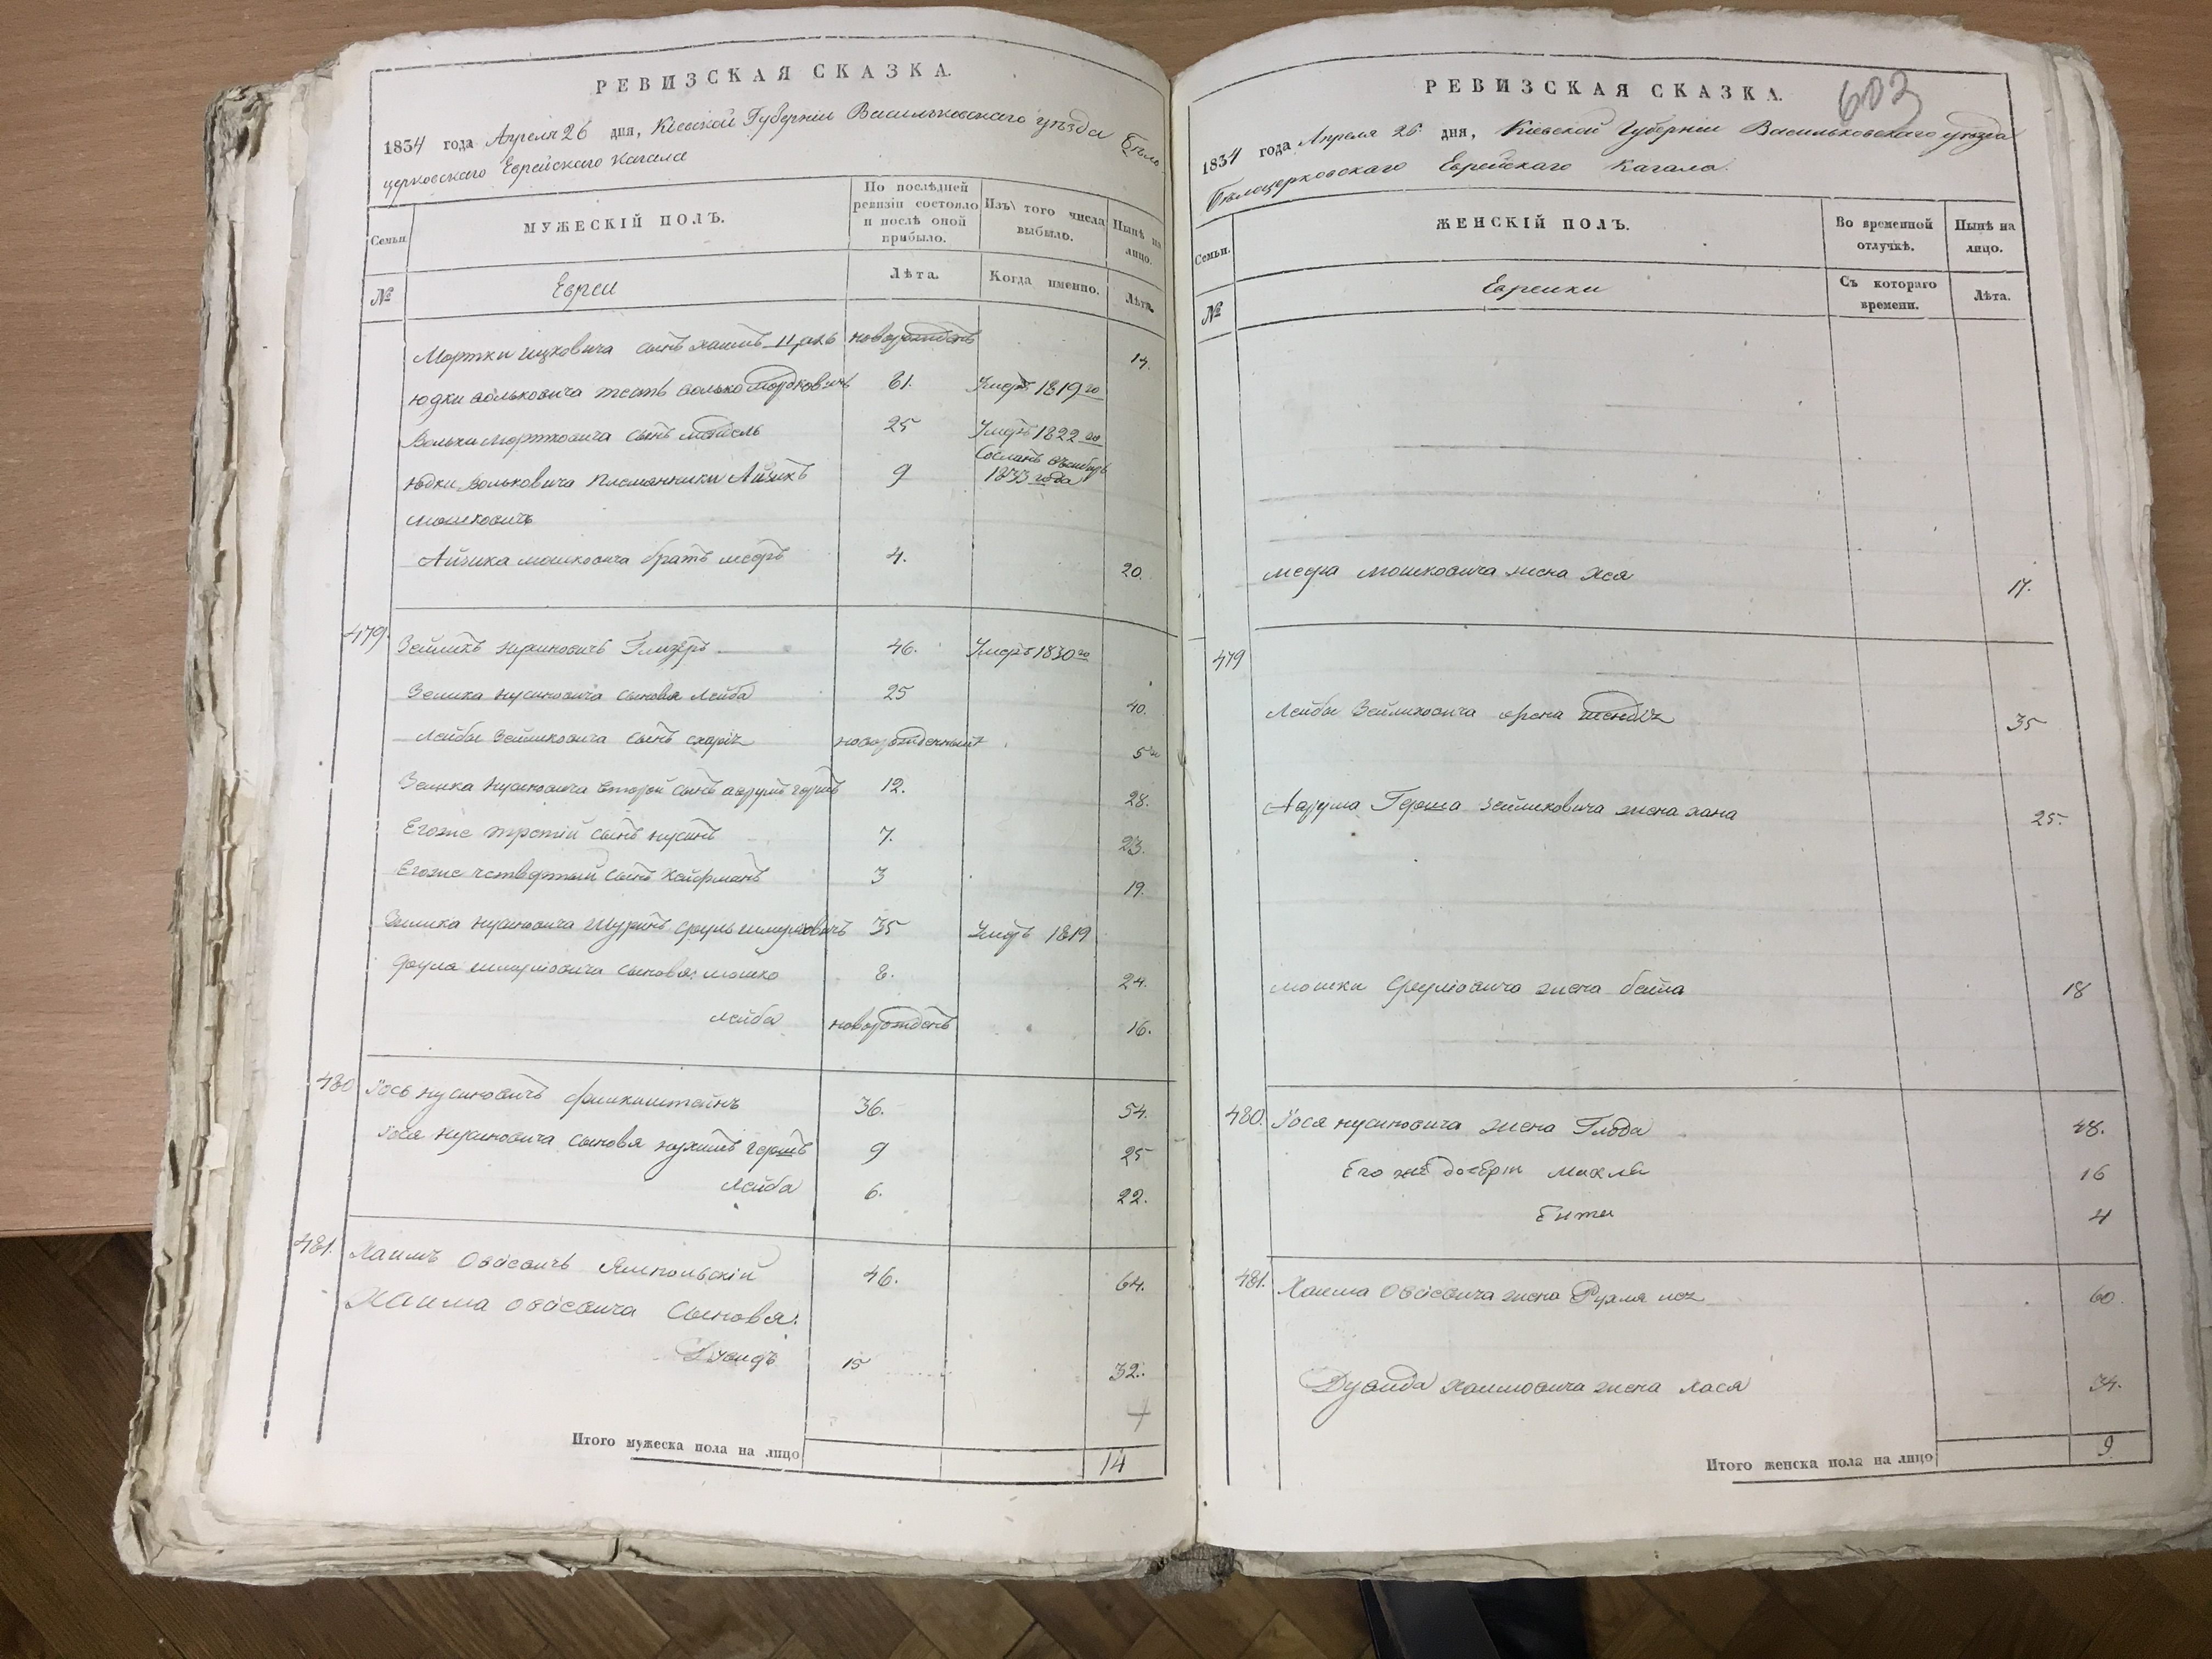 РЕВИЗСКАЯ СКАЗКА.
1834 года Апреля 26 дня, Кіевской Губерніи Васильковскаго уѣзда Бѣло
церковскаго Еврейскаго Кагала
Семьи.
МУЖЕСКІЙ ПОЛЪ.
По послѣдней ревизіи состояло и послѣ оной прибыло.
Изъ того числа выбыло.
Нынѣ на лицо.
№
Евреи
Лѣта.
Когда именно.
Лѣта.
Мортки Ицковича сынъ хаимъ новорожденъ 14.
юдки вольковича тесть волько мордковичъ 61. Умеръ 1819 го
Вольки Мортковича сынъ 25 Умеръ 1822 го
Юдки Вольковича племянники Айзикъ 9 Сосланъ 1833 года
мошковичъ
Айзика мошковича братъ мееръ 4. 20.
479. Зейликъ нусиновичъ 46. Умеръ 1830 го
Зелика нусиновича сыновья Лейба 25 40.
Лейбы Зейликовича сынъ новорожденный 5
Зелика Нусиновича второй сынъ аврумъ гершъ 12. 28.
Егоже третій сынъ нусинъ 7. 23.
Егоже четвертый сынъ Койфманъ 3 19.
Зелика нусиновича Шуринъ сруль шмулiовичъ 35 Умеръ 1819
Сруля шмулiовича сыновья: мошко 8. 24.
лейба новорожденъ 16.
480 Iось нусиновичъ финкинштейнъ 36. 54.
Iося Нусиновича сыновя нухимъ гершъ 9 25
Лейба 6. 22.
481. Хаимъ Овсiевичъ Ямпольскій 46. 64.
Хаима овсiевича сыновья:
Дувидъ 15 32.
Итого мужеска пола на лицо 14
603
РЕВИЗСКАЯ СКАЗКА.
1834 года Апреля 26 дня, Кіевской Губерніи Васильковскаго уѣзда
Бѣлоцерковскаго Еврейскаго Кагала.
Семьи.
ЖЕНСКІЙ ПОЛЪ.
Во временной отлучкѣ.
Нынѣ на лицо.
№
Евреики
Съ котораго времени.
Лѣта.
меера мошковича жена хая 17.
479
Лейбы Зейликовича жена 35
Аврума Герша зейликовича жена хана 25.
мошки Срулiовича жена бейла 18
480. Iося нусиновича жена 48.
Его же дочери 16
4
481. Хаима Овсiевича жена Рухля 60.
Дувида хаимовича жена хася 34.
Итого женска пола на лицо 9